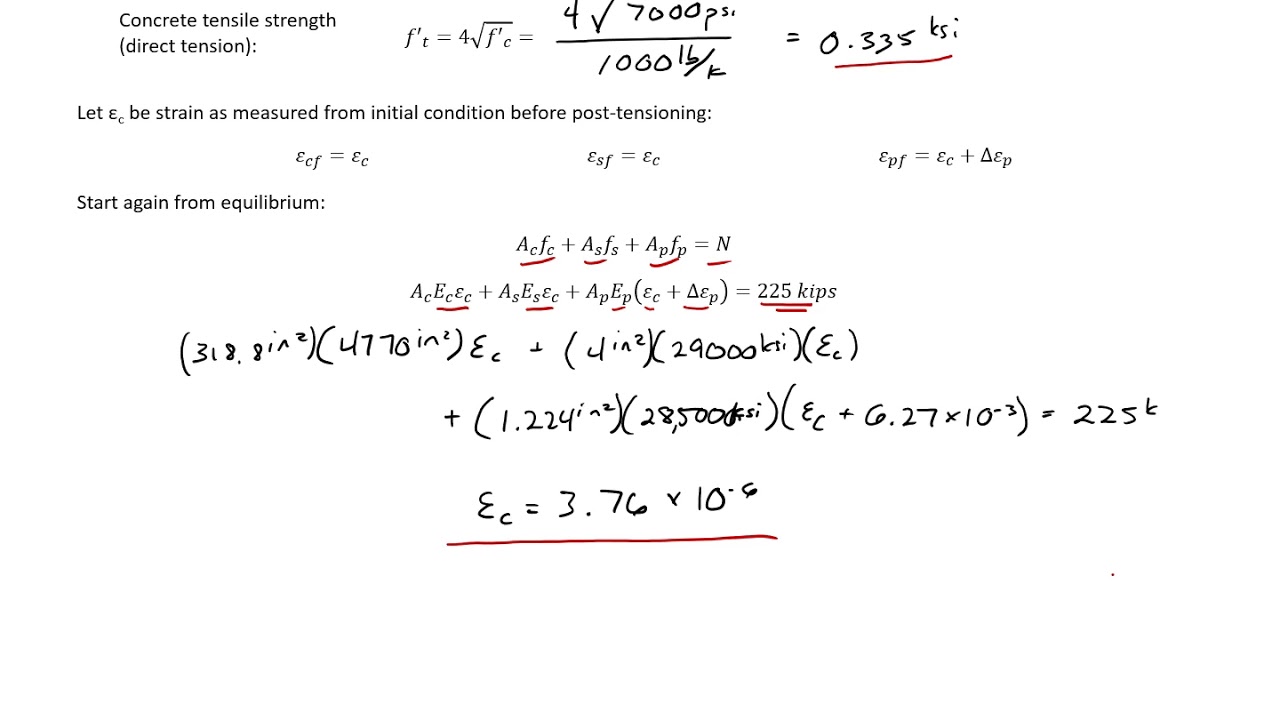 Concrete tensile strength
(direct tension):
f'ₜ = 4√f'꜀ = 4√7000psi / 1000 lb/k = 0.335 ksi
Let ε꜀ be strain as measured from initial condition before post-tensioning:
ε_cf = ε_c ε_sf = ε_c ε_pf = ε_c + Δε_p
Start again from equilibrium:
A_c f_c + A_s f_s + A_p f_p = N
A_c E_c ε_c + A_s E_s ε_c + A_p E_p (ε_c + Δε_p) = 225 kips
(318.8in²)(4770in²) ε_c + (4in²)(29000ksi)(ε_c)
+ (1.224in²)(28,500ksi)(ε_c + 6.27×10⁻³) = 225k
ε_c = 3.76 × 10⁻⁶